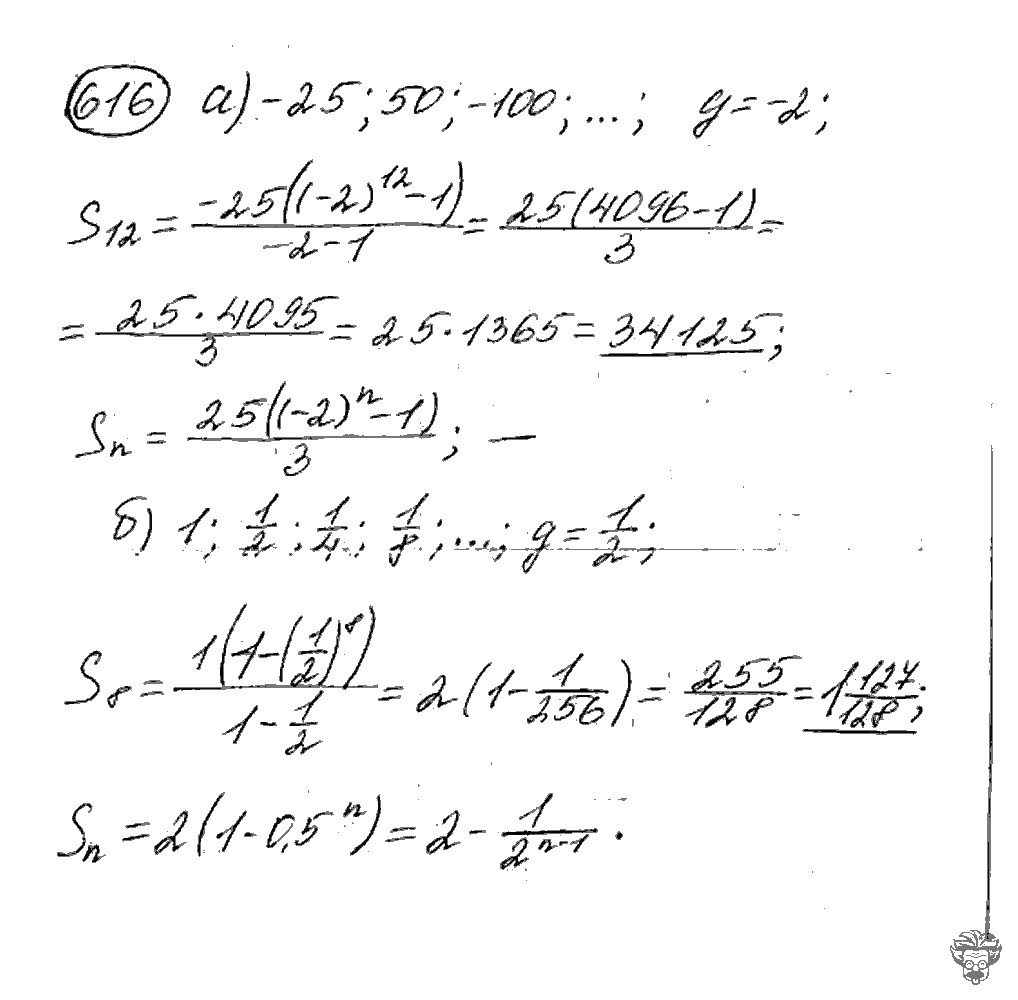 616 а) -25; 50; -100; ...; g = -2;
S₁₂ = (-25((-2)¹² - 1))/(-2-1) = (25(4096-1))/3 =
= (25·4095)/3 = 25·1365 = 34125;
Sₙ = (25((-2)ⁿ - 1))/3; —
б) 1; 1/2; 1/4; 1/8; ...; g = 1/2;
S₈ = (1(1-(1/2)⁸))/(1-1/2) = 2(1 - 1/256) = 255/128 = 1 127/128;
Sₙ = 2(1-0,5ⁿ) = 2 - 1/2ⁿ⁻¹.